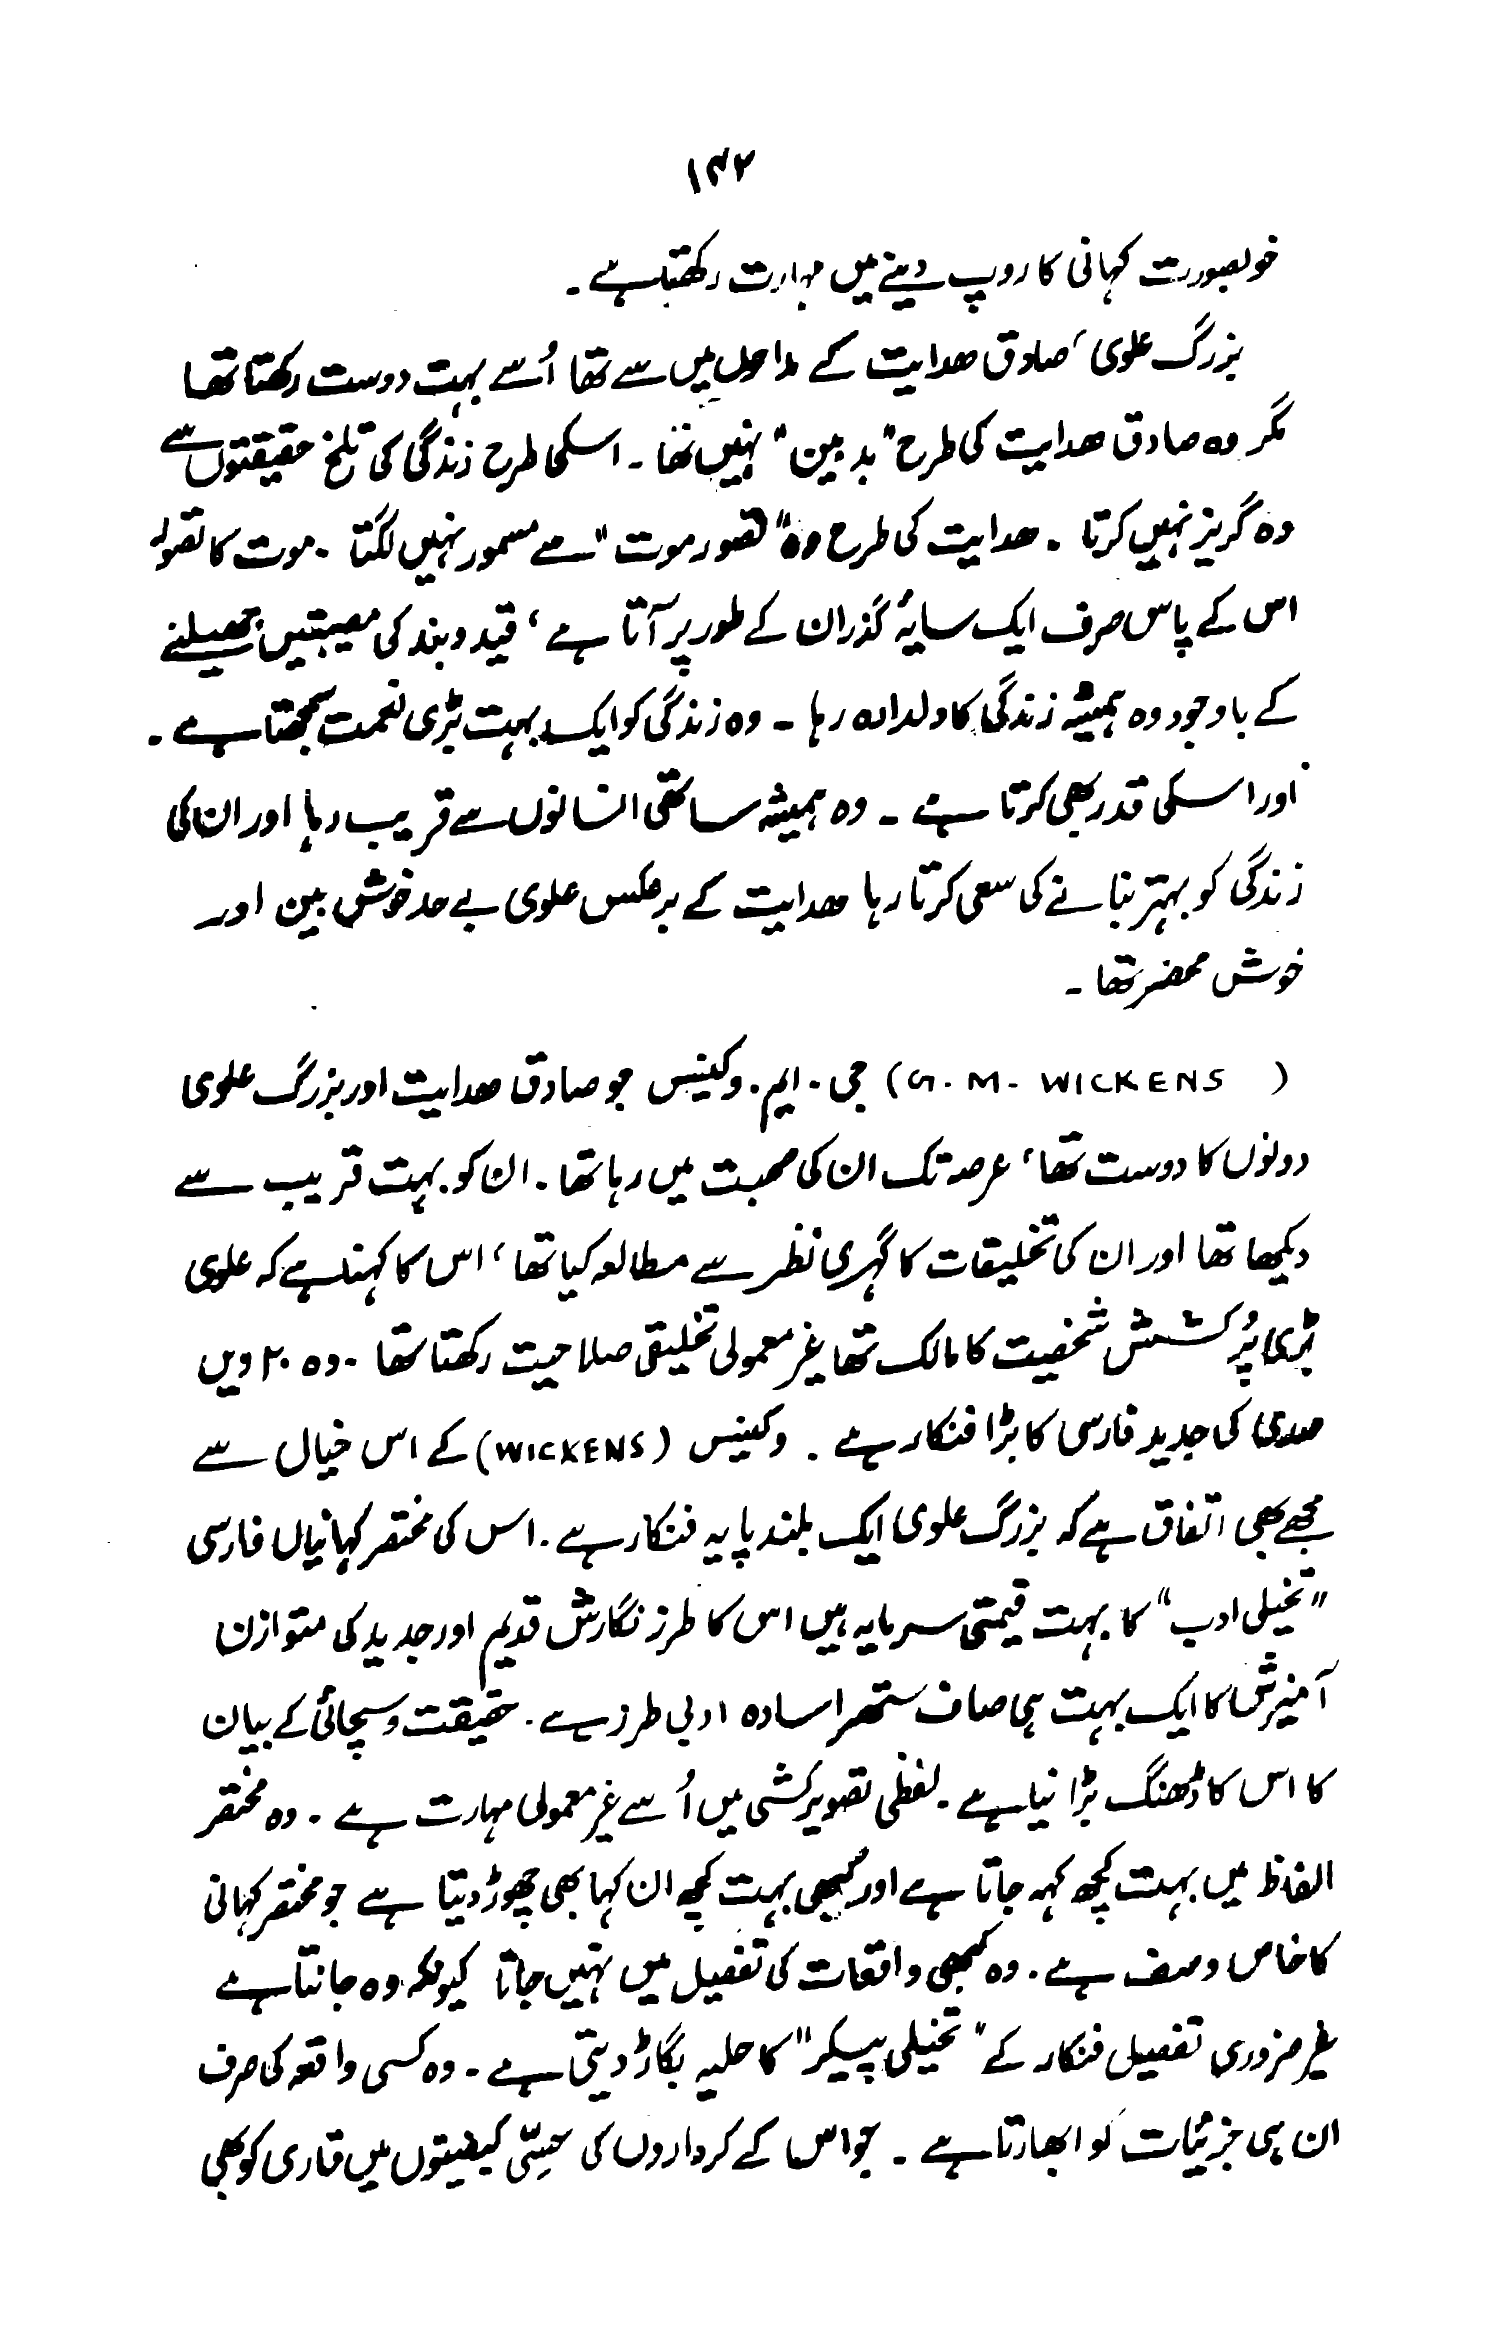 ۱۴۲
خوبصورت کہانی کا روپ دینے میں مہارت رکھتا ہے۔
بزرگ علوی، صادق ھدایت کے مداحوں میں سے تھا اُسے بہت دوست رکھتا تھا
مگر وہ صادق ھدایت کی طرح "بد بین" نہیں تھا۔ اسکی طرح زندگی کی تلخ حقیقتوں سے
وہ گریز نہیں کرتا۔ ھدایت کی طرح وہ "تصور موت" سے مسحور نہیں لگتا۔ موت کا تصور
اس کے پاس صرف ایک سایۂ گذران کے طور پر آتا ہے، قید و بند کی مصیبتیں جھیلنے
کے باوجود وہ ہمیشہ زندگی کا دلدادہ رہا۔ وہ زندگی کو ایک بہت بڑی نعمت سمجھتا ہے۔
اور اسکی قدر بھی کرتا ہے۔ وہ ہمیشہ ساتھی انسانوں سے قریب رہا اور ان کی
زندگی کو بہتر بنانے کی سعی کرتا رہا ھدایت کے برعکس علوی بے حد خوش بین اور
خوش محضر تھا۔
(G. M. WICKENS) جی۔ ایم۔ وکینس جو صادق ھدایت اور بزرگ علوی
دونوں کا دوست تھا، عرصہ تک ان کی صحبت میں رہا تھا۔ ان کو بہت قریب سے
دیکھا تھا اور ان کی تخلیقات کا گہری نظر سے مطالعہ کیا تھا، اس کا کہنا ہے کہ علوی
بڑی پُر کشش شخصیت کا مالک تھا غیر معمولی تخلیقی صلاحیت رکھتا تھا۔ وہ ۲۰ ویں
صدی کی جدید فارسی کا بڑا فنکار ہے۔ وکینس (WICKENS) کے اس خیال سے
مجھے بھی اتفاق ہے کہ بزرگ علوی ایک بلند پایہ فنکار ہے۔ اس کی مختصر کہانیاں فارسی
"تخیلی ادب" کا بہت قیمتی سرمایہ ہیں اس کا طرز نگارش قدیم اور جدید کی متوازن
آمیزش کا ایک بہت ہی صاف ستھرا سادہ ادبی طرز ہے۔ حقیقت و سچائی کے بیان
کا اس کا ڈھنگ بڑا نیا ہے۔ لفظی تصویر کشی میں اُسے غیر معمولی مہارت ہے۔ وہ مختصر
الفاظ میں بہت کچھ کہہ جاتا ہے اور کبھی بہت کچھ ان کہا بھی چھوڑ دیتا ہے جو مختصر کہانی
کا خاص وصف ہے۔ وہ کبھی واقعات کی تفصیل میں نہیں جاتا کیونکہ وہ جانتا ہے
غیر ضروری تفصیل فنکار کے "تخیلی پیکر" کا حلیہ بگاڑ دیتی ہے۔ وہ کسی واقعہ کی صرف
ان ہی جزئیات کو ابھارتا ہے۔ جو اس کے کرداروں کی حسِّی کیفیتوں میں قاری کو بھی